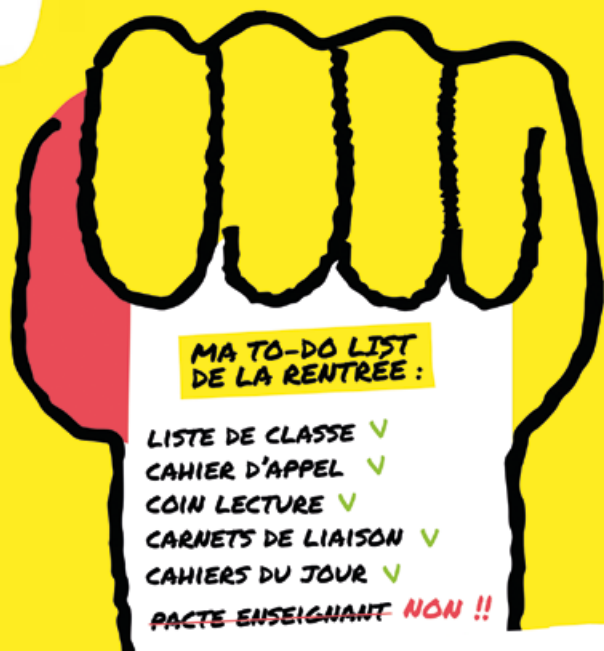 MA TO-DO LIST
DE LA RENTRÉE :
LISTE DE CLASSE V
CAHIER D'APPEL V
COIN LECTURE V
CARNETS DE LIAISON V
CAHIERS DU JOUR V
PACTE ENSEIGNANT NON !!